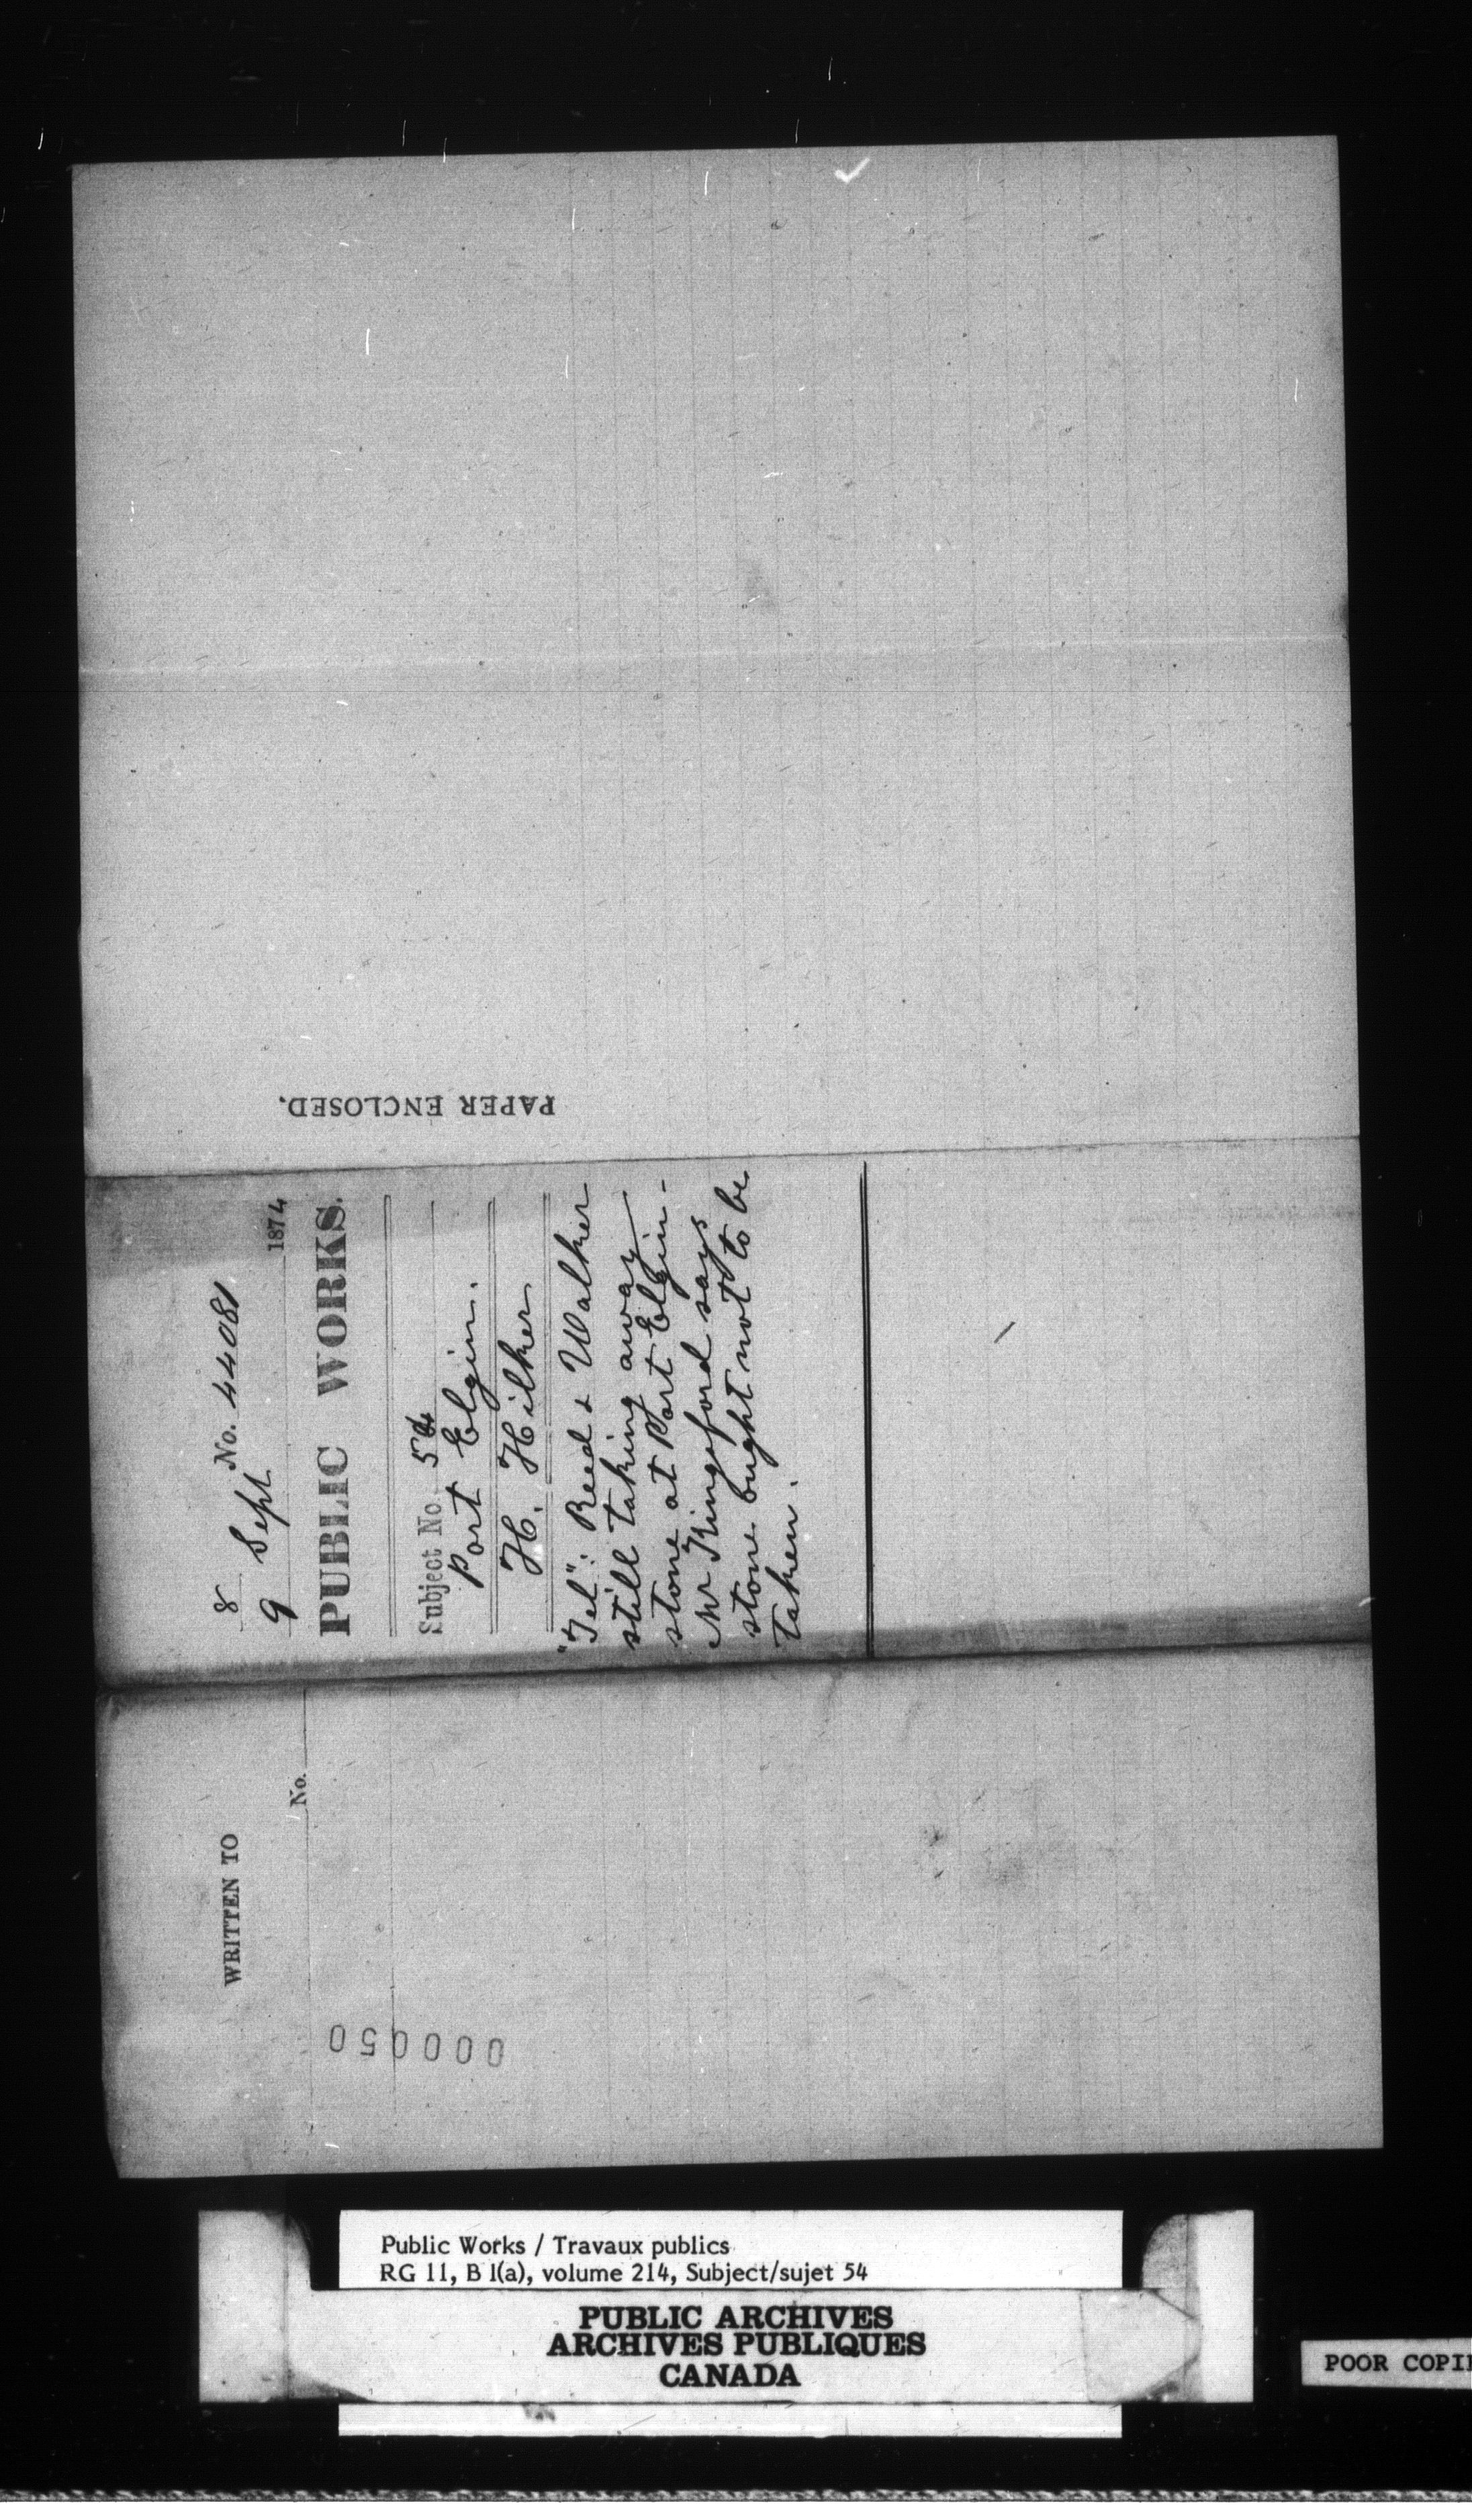 PAPER ENCLOSED.
8 No. 44081
9 Sept 1874
PUBLIC WORKS.
Subject No. 54
Port Elgin.
H. Hilker
"Tel": Reed & Walker
still taking away
stone at Port Elgin-
Mr Kingsford says
stone bught not to be
taken.
WRITTEN TO
No.
000050
Public Works / Travaux publics
RG 11, B 1(a), volume 214, Subject/sujet 54
PUBLIC ARCHIVES
ARCHIVES PUBLIQUES
CANADA
POOR COPI